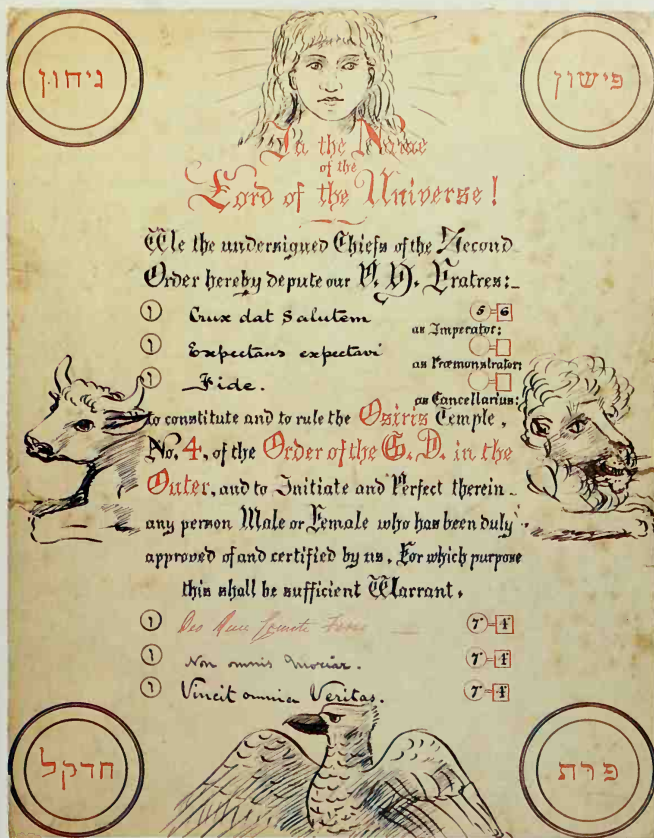 גיחון
פישון
In the Name
of the
Lord of the Universe!
We the undersigned Chiefs of the Second
Order hereby depute our V. H. Fratres:_
ו Crux dat Salutem 5=6
as Imperator:
ו Expectans expectavi
as Præmonstrator:
ו Fide.
as Cancellarius:
to constitute and to rule the Osiris Temple,
No. 4, of the Order of the G. D. in the
Outer, and to Initiate and Perfect therein_
any person Male or Female who has been duly
approved of and certified by us. For which purpose
this shall be sufficient Warrant.
ו Deo Duce Comite Ferro 7=4
ו Non omnis Moriar. 7=4
ו Vincit omnia Veritas. 7=4
חדקל
פרת